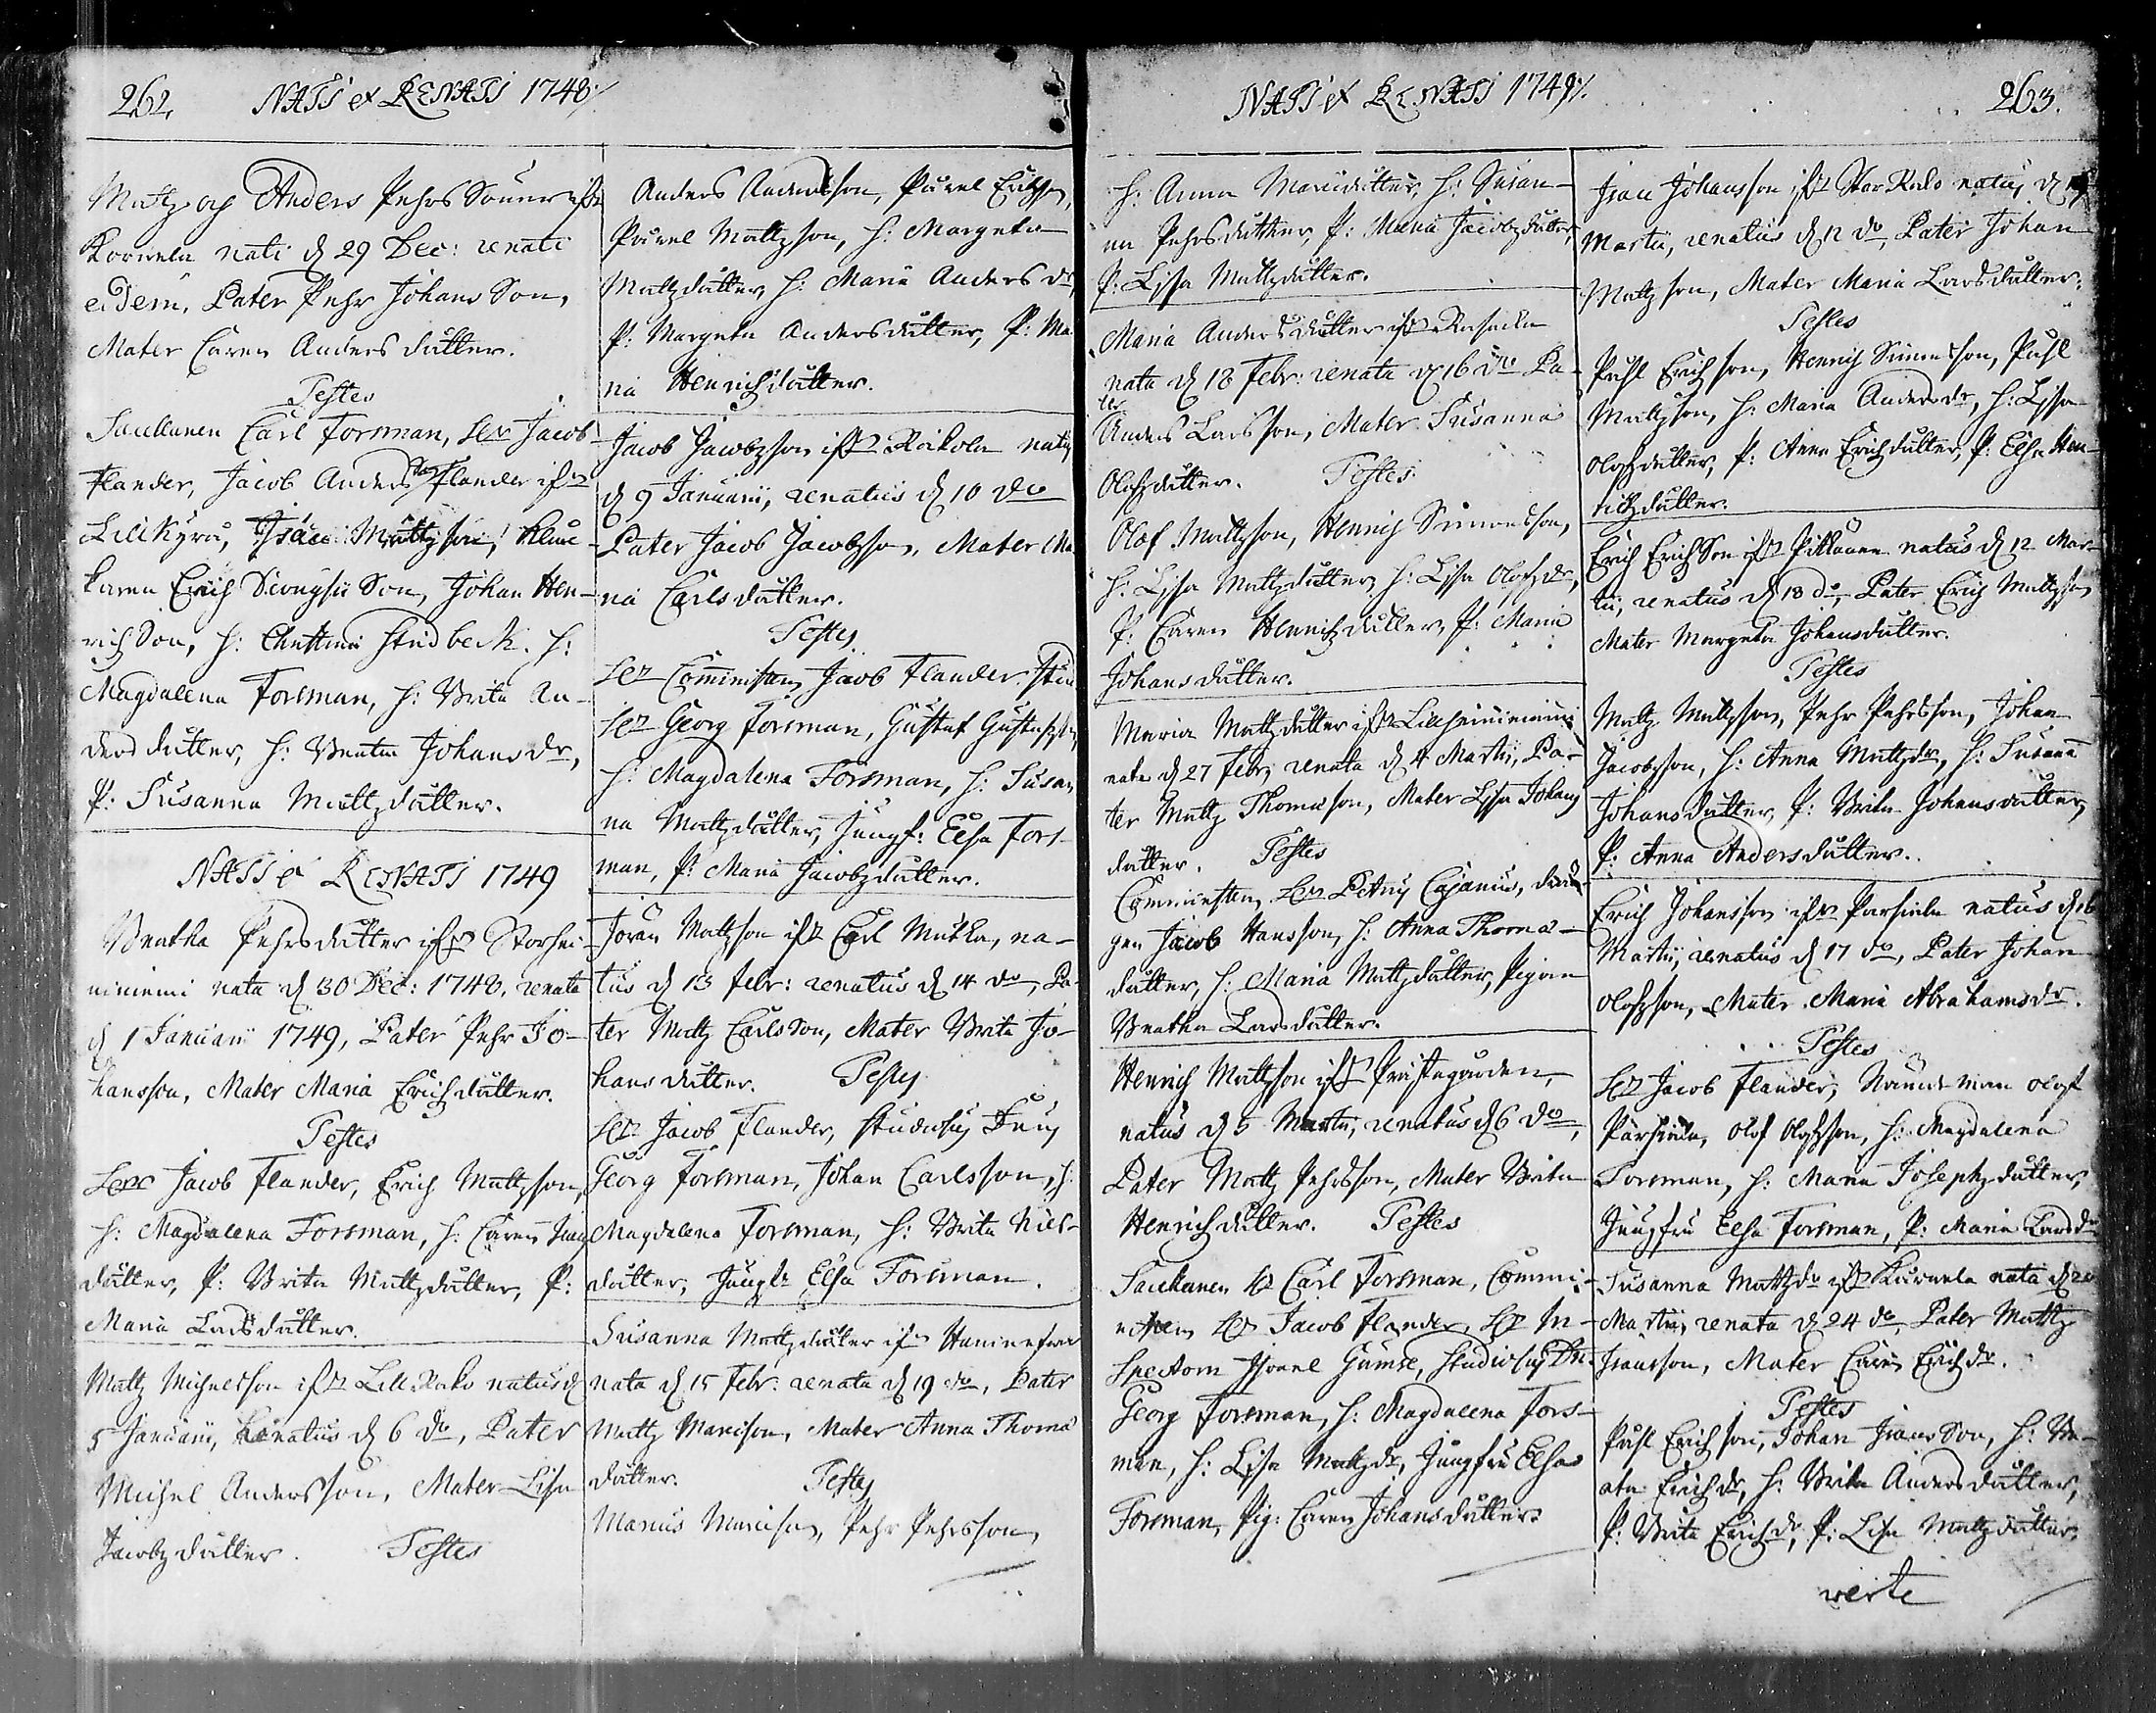 262. NATI et RENATI 1748
Mattz och Anders Pehrs Söner ifrån
Korvela nati d 29 Dec: renati
eodem, Pater Pehr Johans Son,
Mater Caren Anders dutter.
Testes
Sacellanen Carl Forsman, Hr Jacob
Flander, Jacob Anders Son Flander ifrån
Lillkyro, Isaac Mattzson,
Erich Son, Johan Hen-
rich Son, H: Christina Studbeck. H:
Magdalena Forsman, H: Brita An-
ders dutter, H: Beata Johans dr,
P: Susanna Mattzdutter.
NATI et RENATI 1749
Beatha Pehrsdutter ifrån Storhei-
nieniemi nata d 30 Dec: 1748, renata
d 1 Januarii 1749, Pater Pehr Jo-
hansson, Mater Maria Erichdutter.
Testes
Hr Jacob Flander, Erich Mattzson,
H: Magdalena Forsman, H: Caren
dutter, P: Brita Mattzdutter, P:
Maria Larsdutter.
Mattz Michelsson ifrån Lill Kako natus d
5 Januarii, Renatus d 6 do, Pater
Michel Andersson, Mater Lisa
Jacobz dutter. Testes
Anders Andersson, Påvel Erichson,
Påvel Mattzson, H: Margeta
Mattzdutter, H: Maria Anders dr,
P: Margeta Andersdutter, P: Ma
ria Henrichdutter.
Jacob Jacobzson ifrån Roikola natus
d 9 Januarii, renatus d 10 do
Pater Jacob Jacobzson, Mater Ma
ria Carlsdutter.
Testes
Hr Comministern Jacob Flander, Stud
Hr Georg Forsman, Gustaf Gustafsson,
H: Magdalena Forsman, H: Susan
na Mattzdutter, Jungf: Elsa Fors-
man, P: Maria Jacobzdutter.
Jöran Mattzson ifrån Carl Mutka, na-
tus d 13 febr: renatus d 14 do, Pa-
ter Mattz Carlsson, Mater Brita Jo-
hans dutter. Testes
Hr Jacob Flander, Studiosus Dnus
Georg Forsman, Johan Carlsson, H:
Magdalena Forsman, H: Brita Niels-
dutter, Jungfr Elsa Forsman.
Susanna Mattzdutter ifrån
nata d 15 febr: renata d 19 do, Pater
Mattz Marcison, Mater Anna Thoma
dutter. Testes
Marcus Marcison, Pehr Pehrsson,
NATI et RENATI 1749. 263.
H: Anna Marcidutter, H: Susan-
na Pehrsdutter, P: Maria Jacobzdutter,
P: Lisa Mattzdutter.
Maria Andersdutter ifrån
nata d 18 Febr: renata d 16 do Pa-
ter
Anders Larsson, Mater Susanna
Olofzdutter. Testes
Olof Mattzson, Henrich Simonsson,
H: Lisa Mattzdutter, H: Lisa Olofzdr,
P: Caren Henrichdutter, P: Maria
Johansdutter.
Maria Mattzdutter ifrån Lillheinieniemi
nata d 27 Febr, renata d 4 Martii, Pa-
ter Mattz Thomason, Mater Lisa Johans
dutter. Testes
Comministern Hr Petrus Cajanus, drän-
gen Jacob Hansson, H: Anna Thomas-
dutter, H: Maria Mattzdutter, Pigan
Beatha Larsdutter.
Henrich Mattzson ifrån Prästegården,
natus d 5 Martii, renatus d 6 do,
Pater Mattz Pehrsson, Mater Brita
Henrichdutter. Testes
Sacellanen Hr Carl Forsman, Commi-
nistern Hr Jacob Flander, Hr In-
spectorn Gumse, Studiosus Dn
Georg Forsman, H: Magdalena Fors-
man, H: Lisa Mattzdr, Jungfru Elsa
Forsman, Pig: Caren Johansdutter.
Isac Johansson ifrån Stor Kako natus d
Martii, renatus d 12 do, Pater Johan
Mattzson, Mater Maria Larsdutter.
Testes
Påhl Erichson, Henrich Simonsson, Påhl
Mattzson, H: Maria Andersdr, H: Lisa
Olofzdutter, P: Anna Erichdutter, P: Elsa Hen-
richdutter.
Erich Erichson ifrån natus d 12 Mar-
tii, renatus d 18 do, Pater Erich Mattzson
Mater Margeta Johansdutter.
Testes
Mattz Mattzson, Pehr Pehrsson, Johan
Jacobsson, H: Anna Mattzdr, H: Susanna
Johansdutter, P: Brita Johansdutter,
P: Anna Andersdutter.
Erich Johansson ifrån Parsiala natus d 16
Martii, renatus d 17 do, Pater Johan
Olofzson, Mater Maria Abrahamsdr.
Testes
Hr Jacob Flander, Nämndeman Olof
Parsiala, Olof Olofzson, H: Magdalena
Forsman, H: Maria Josephzdutter,
Jungfru Elsa Forsman, P: Maria Larsdr
Susanna Mattzdr ifrån Kurvela nata d 20
Martii, renata d 24 do, Pater Mattz
Isacsson, Mater Caren Erichdr.
Testes
Påhl Erichson, Johan Isacsson, H: Be-
ata Erichdr, H: Brita Andersdutter,
P: Brita Erichdr, P: Lisa Mattzdutter.
verte